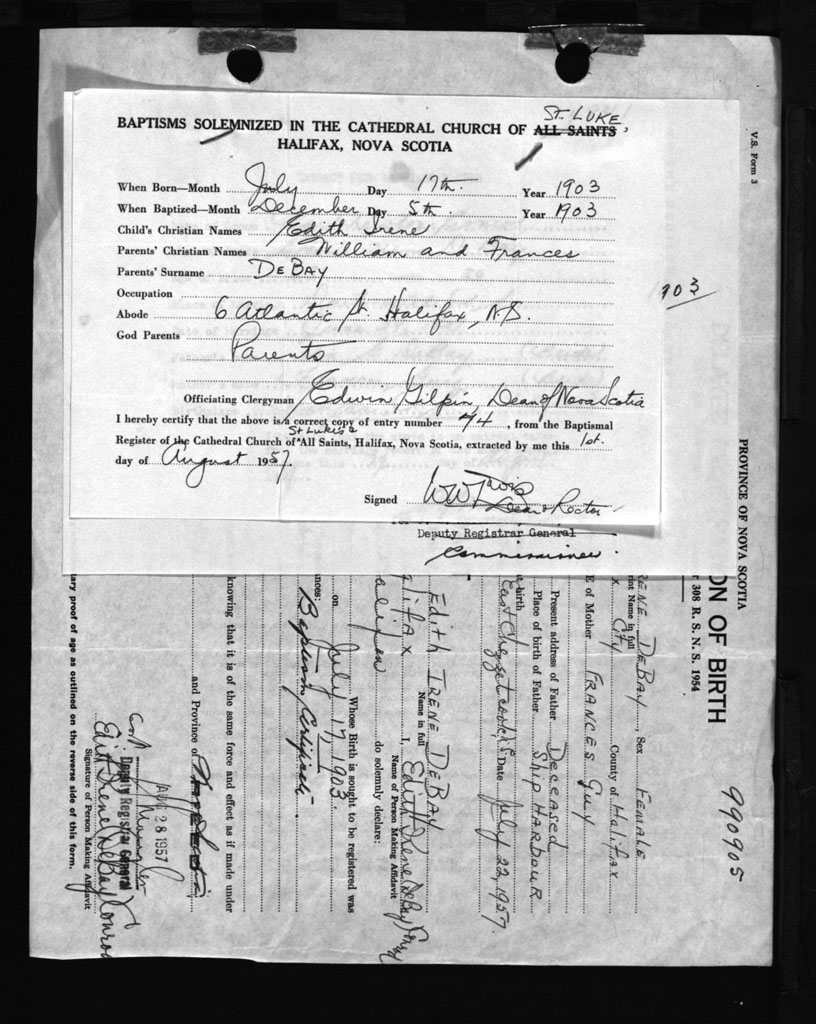 ST. LUKE,
BAPTISMS SOLEMNIZED IN THE CATHEDRAL CHURCH OF ALL SAINTS
HALIFAX, NOVA SCOTIA
When Born—Month July Day 17th. Year 1903
When Baptized—Month December Day 5th. Year 1903
Child's Christian Names Edith Irene
Parents' Christian Names William and Frances
Parents' Surname DeBay
Occupation
Abode 6 Atlantic St. Halifax, N.S.
God Parents Parents
Officiating Clergyman Edwin Gilpin, Dean of Nova Scotia
I hereby certify that the above is a correct copy of entry number 44, from the Baptismal
St Luke's
Register of the Cathedral Church of All Saints, Halifax, Nova Scotia, extracted by me this 1st.
day of August 1957.
Signed WW Davis
Dean & Rector
Deputy Registrar General
Commissioner.
903
V.S. Form 3
PROVINCE OF NOVA SCOTIA
ON OF BIRTH
308 R. S. N. S. 1954
990905
RENE DEBAY, Sex FEMALE
rint Name in full
x. City County of Halifax
E of Mother FRANCES GUY
Present address of Father DECEASED
Place of birth of Father SHIP HARBOUR
t birth
East Chezzetcook Date July 22, 1957.
EDITH IRENE DEBAY
Name in full
lifax I, Edith Irene DeBay
Name of Person Making Affidavit
do solemnly declare:
Whose Birth is sought to be registered was
on July 17, 1903
nces: Baptism Certificate.
knowing that it is of the same force and effect as if made under
and Province of Nova Scotia
AUG 28 1957
Deputy Registrar General
Edith Irene DeBay Conrod
Signature of Person Making Affidavit
tary proof of age as outlined on the reverse side of this form.